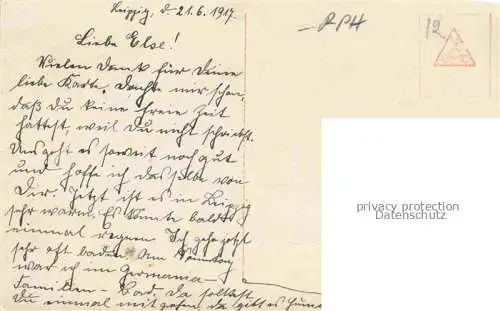 Leipzig, d. 21.6.1917.
RPH
12
Liebe Else!
Vielen Dank für Deine
liebe Karte. Dachte mir schon,
daß Du keine freie Zeit
hattest, weil Du nicht schriebst.
Uns geht es soweit noch gut
und hoffe ich dasselbe von
Dir. Jetzt ist es in Leipzig
sehr warm. Es könnte bald
einmal regnen. Ich gehe jetzt
sehr oft baden. Am Sonntag
war ich im Germania-
Familien-Bad. Da solltest
Du einmal mit gehen, da gibt es
Privatsphäre
Datenschutz